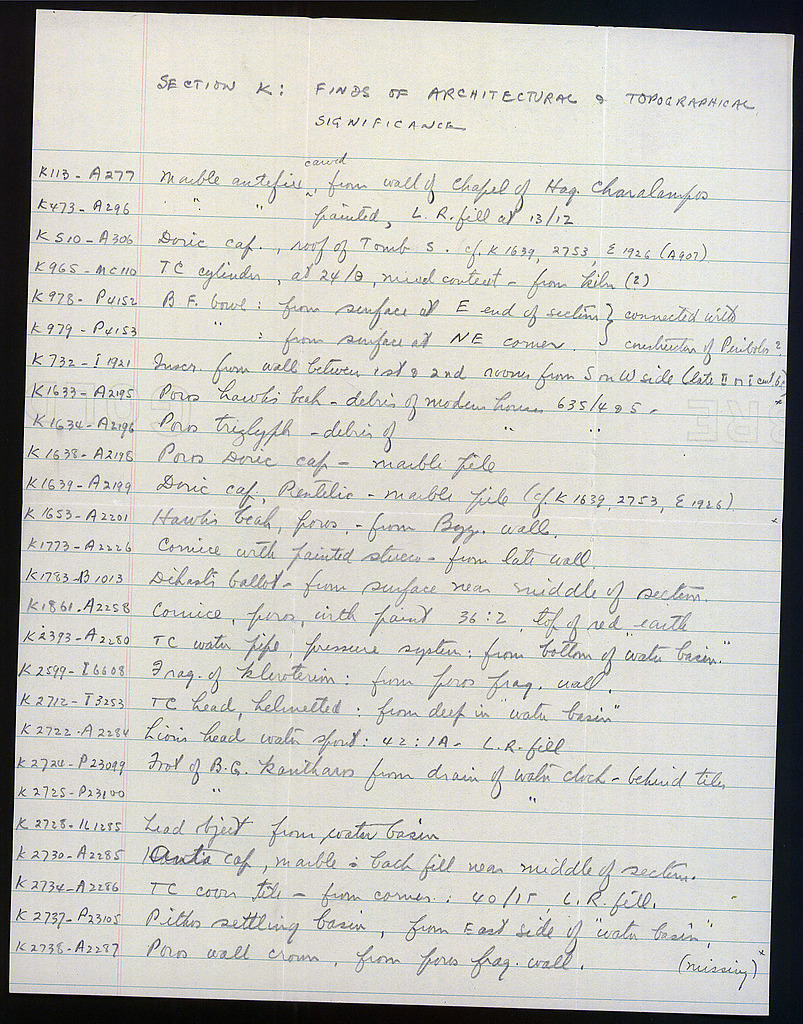 SECTION K: FINDS OF ARCHITECTURAL & TOPOGRAPHICAL
SIGNIFICANCE
K113 - A277 Marble antefix, carved, from wall of Chapel of Hag. Charalampos
K473 - A296 " " painted, L.R. fill at 13/12
K510 - A306 Doric cap., roof of Tomb S. cf. K1639, 2753, Σ1926 (A907)
K965 - MC110 TC cylinder, at 24/Θ, mixed context - from kiln (?)
K978 - P4152 B.F. bowl: from surface at E end of section } connected with
K979 - P4153 " : from surface at NE corner. } construction of Peribolos?
K732 - I 1921 Inscr. from wall between 1st & 2nd rooms from S on W side (late II or I cent B.
K1633 - A2195 Poros hawk's beak - debris of modern houses 635/4 & 5 -
K1634 - A2196 Poros triglyph - debris of " "
K1638 - A2198 Poros Doric cap - marble pile
K1639 - A2199 Doric cap, Pentelic - marble pile (cf. K1639, 2753, Σ1926)
K1653 - A2201 Hawk's beak, poros, - from Byz. wall.
K1773 - A2226 Cornice with painted stucco - from late wall.
K1783 - B1013 Dikast's ballot - from surface near middle of section.
K1861 - A2258 Cornice, poros, with paint 36:2, top of red earth
K2393 - A2280 TC water pipe, pressure system: from bottom of "water basin."
K2599 - I 6608 Frag. of kleroterion: from poros frag. wall.
K2712 - T3253 TC head, helmetted: from deep in "water basin"
K2722 - A2284 Lion's head water spout: 42:1A - L.R. fill
K2724 - P23099 Foot of B.G. kantharos from drain of water clock - behind tile
K2725 - P23100 " "
K2728 - IL1255 Lead object from water basin
K2730 - A2285 Anta cap, marble: back fill near middle of section.
K2734 - A2286 TC cover tile - from corner: 40/ΙΓ, L.R. fill.
K2737 - P23105 Pithos settling basin, from East side of "water basin",
K2738 - A2287 Poros wall crown, from poros frag. wall. (missing)